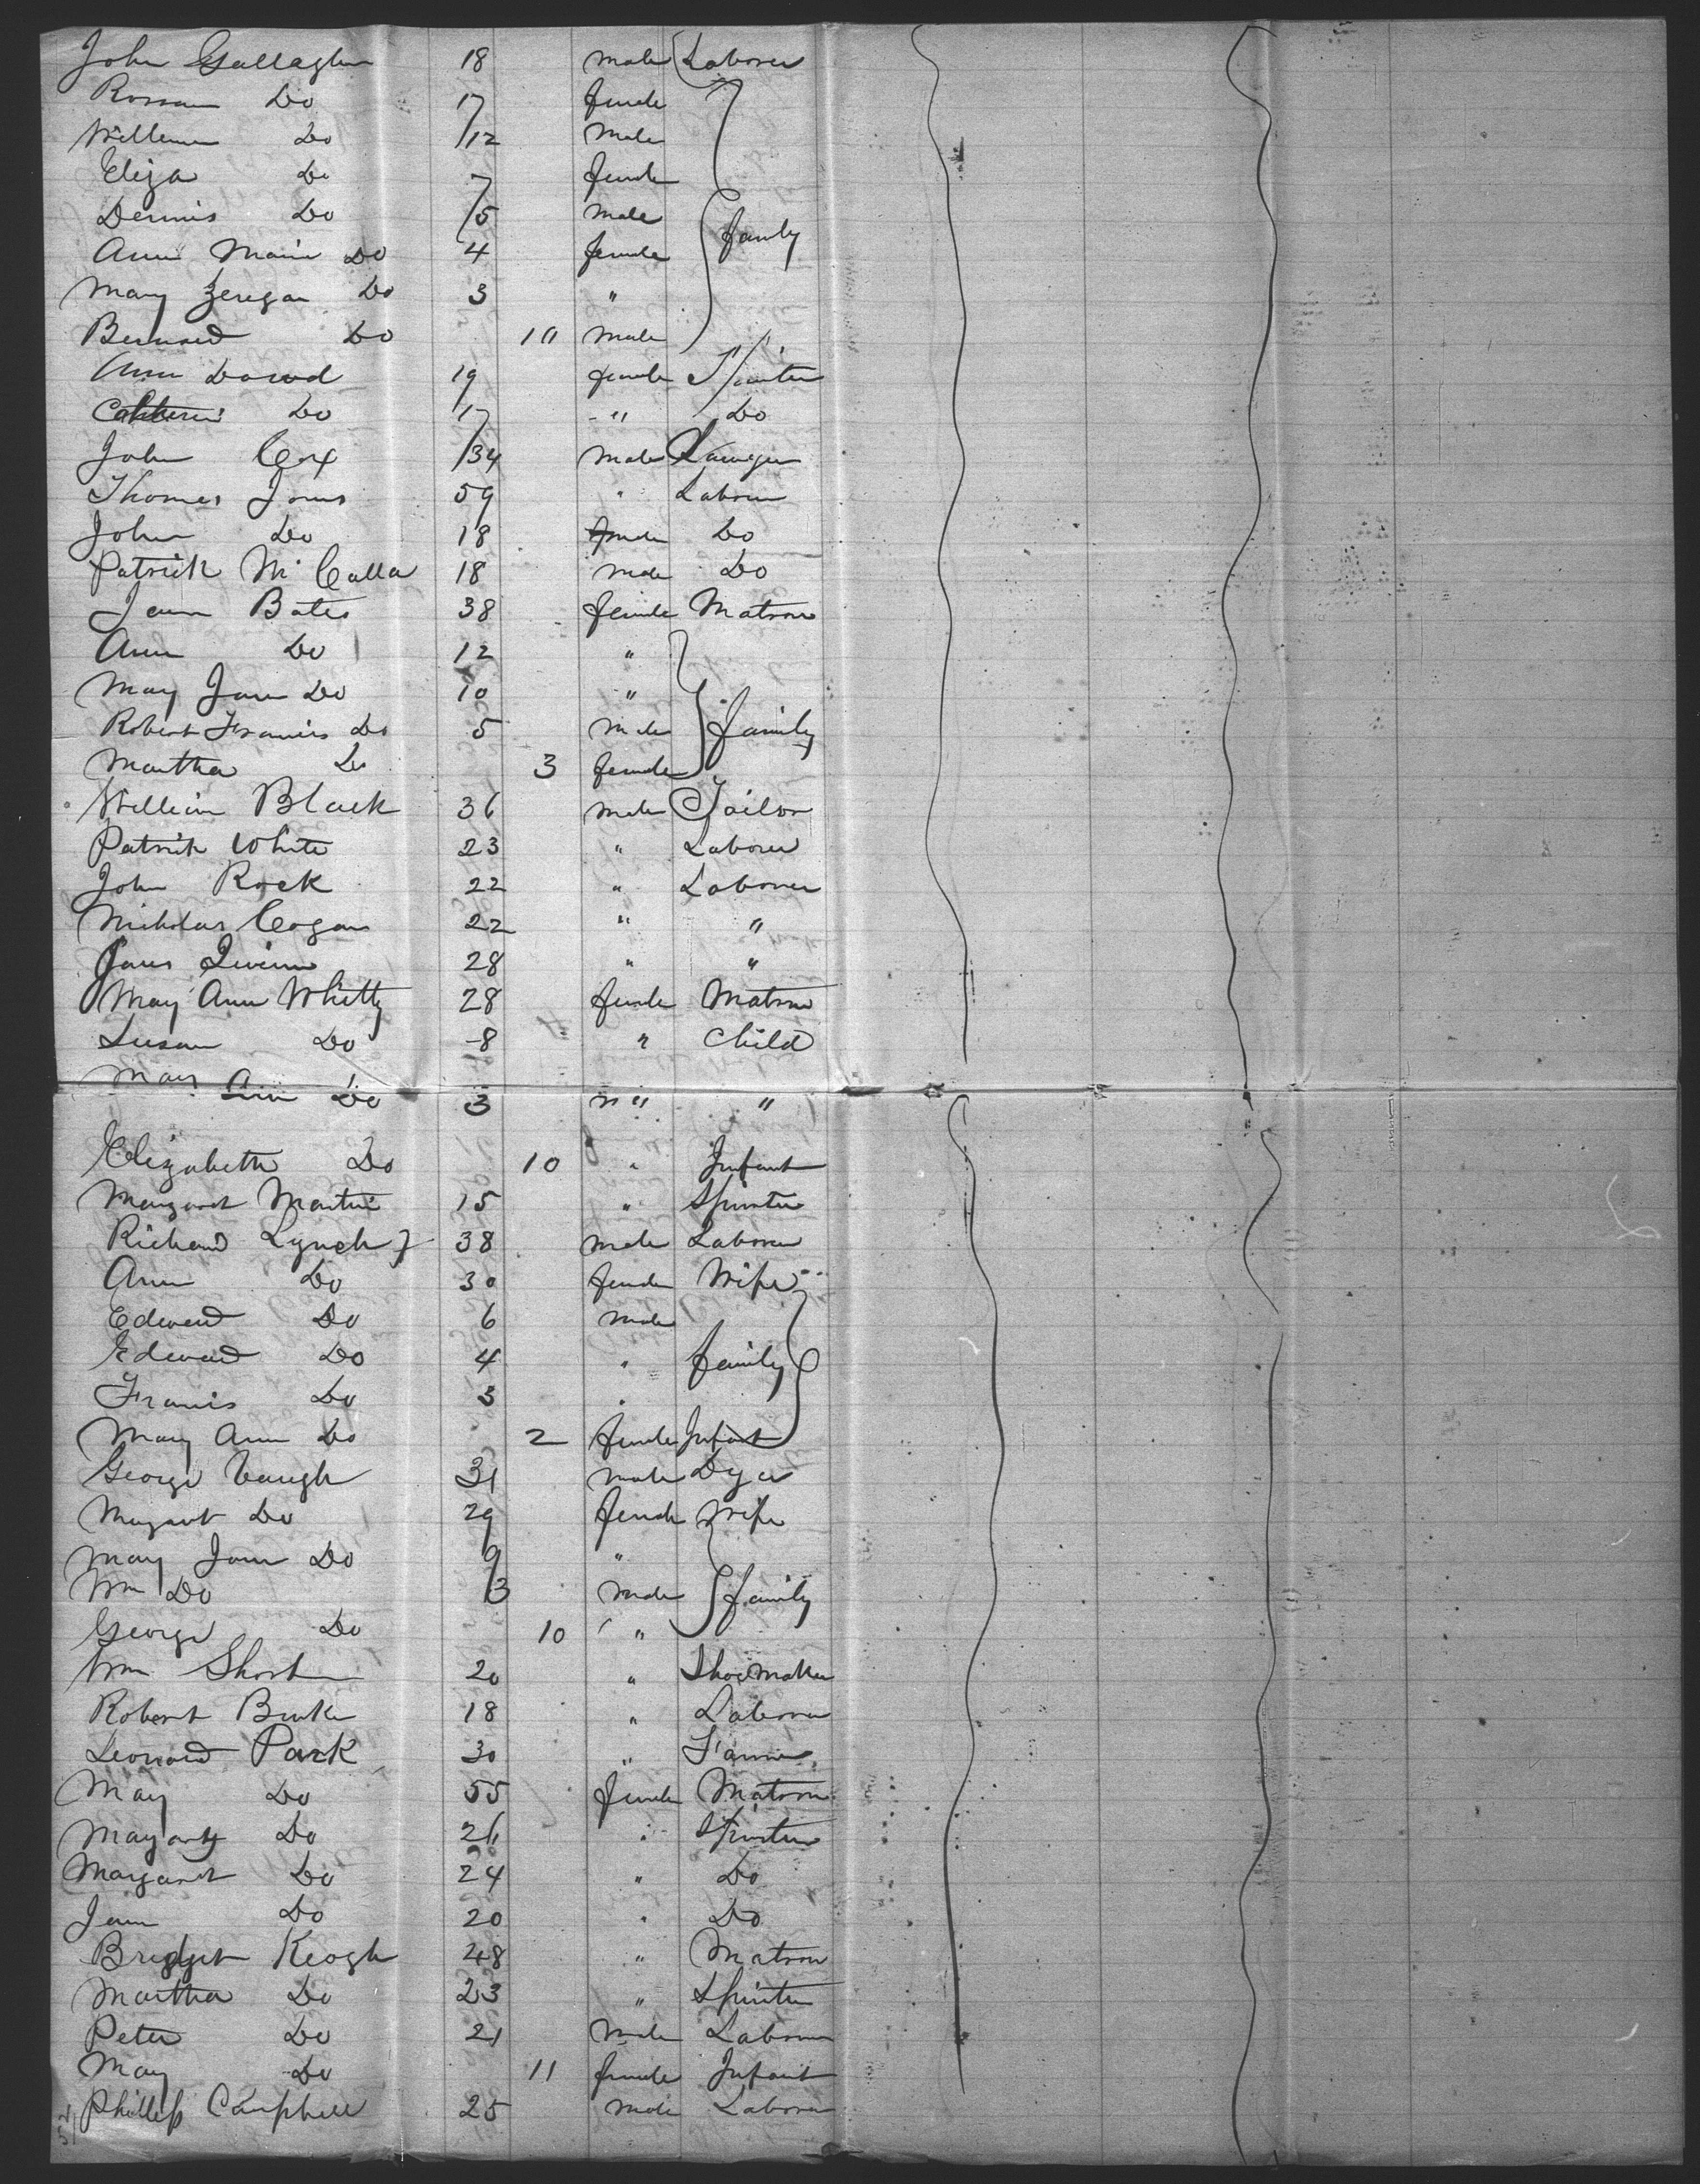 John Gallagher 18 male Laborer
Rossan Do 17 female
William Do 12 male
Eliza Do 7 female
Dennis Do 5 male family
Ann Maria Do 4 female
Mary Do 3 "
Bernard Do 10 male
Ann Dowd 19 female Spinster
Catherine Do 17 " Do
John Cox 34 male
Thomas Jones 59 " Laborer
John Do 18 male Do
Patrick McCalla 18 male Do
Jane Bates 38 female Matron
Ann Do 12 "
May Jane Do 10 "
Robert Francis Do 5 male family
Martha Do 3 female
William Black 36 male Tailor
Patrick White 23 " Laborer
John Rock 22 " Laborer
Nicholas Cogan 22 " "
James 28 " "
May Ann Whitty 28 female Matron
Susan Do 8 " Child
Mary Ann Do 3 " "
Elizabeth Do 10 " Infant
Margaret Martin 15 " Spinster
Richard Lynch 38 male Laborer
Ann Do 30 female Wife
Edward Do 6 male
Edward Do 4 " family
Francis Do 3 "
Mary Ann Do 2 female Infant
George Vaugh 31 male Dyer
Margaret Do 29 female Wife
May Jane Do 9 "
Wm Do 3 male family
George Do 10 "
Wm Short 20 " Shoemaker
Robert Burke 18 " Laborer
Leonard Park 30 " Farmer
May Do 55 female Matron
Do 26 " Spinster
Margaret Do 24 " Do
Jane Do 20 " Do
Bridget Keogh 48 " Matron
Martha Do 23 " Spinster
Peter Do 21 male Laborer
May Do 11 female Infant
Phillip Campbell 25 male Laborer